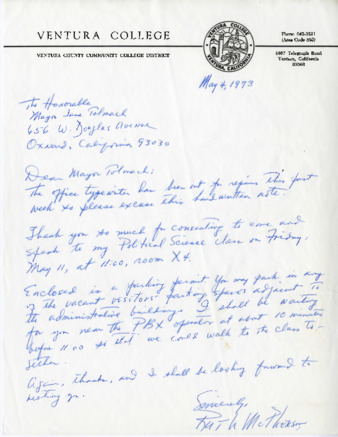 VENTURA COLLEGE
VENTURA COUNTY COMMUNITY COLLEGE DISTRICT
VENTURA COLLEGE
VENTURA, CALIFORNIA
Phone: 642-3211
(Area Code 805)
4667 Telegraph Road
Ventura, California
93003
May 4, 1973
The Honorable
Mayor Jane Tolmach
656 W. Douglas Avenue
Oxnard, California 93030
Dear Mayor Tolmach:
The office typewriter has been out for repairs this past
week so please excuse this handwritten note.
Thank you so much for consenting to come and
speak to my Political Science class on Friday,
May 11, at 11:00, room X4.
Enclosed is a parking permit. You may park in any
of the vacant visitors' parking spaces adjacent to
the administrative building. I shall be waiting
for you near the PBX operator at about 10 minutes
before 11:00 so that we could walk to the class to-
gether.
Again, thanks, and I shall be looking forward to
meeting you.
Sincerely,
Ruth McPherson